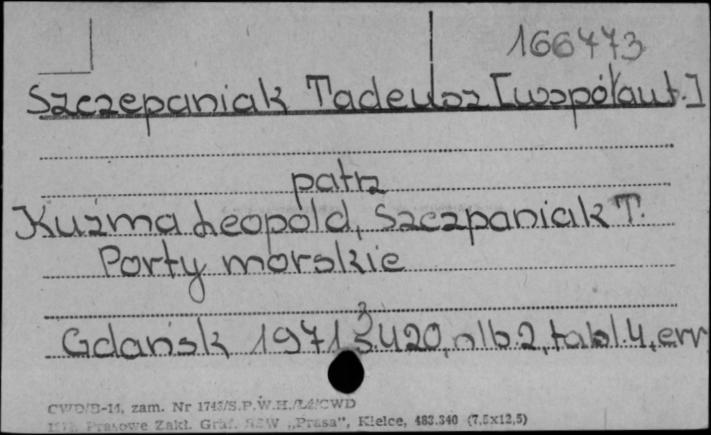 166473
Szczepaniak Tadeusz [współaut.]
patrz
Kuźma Leopold, Szczpaniak T.
Porty morskie
Gdańsk 1971 s. 420, nlb. 2, tabl. 4, err
CWD/B-14, zam. Nr 1743/S.P.W.H./Ł4/CWD
Prasowe Zakł. Graf. RSW „Prasa", Kielce, 483.340 (7,5x12,5)